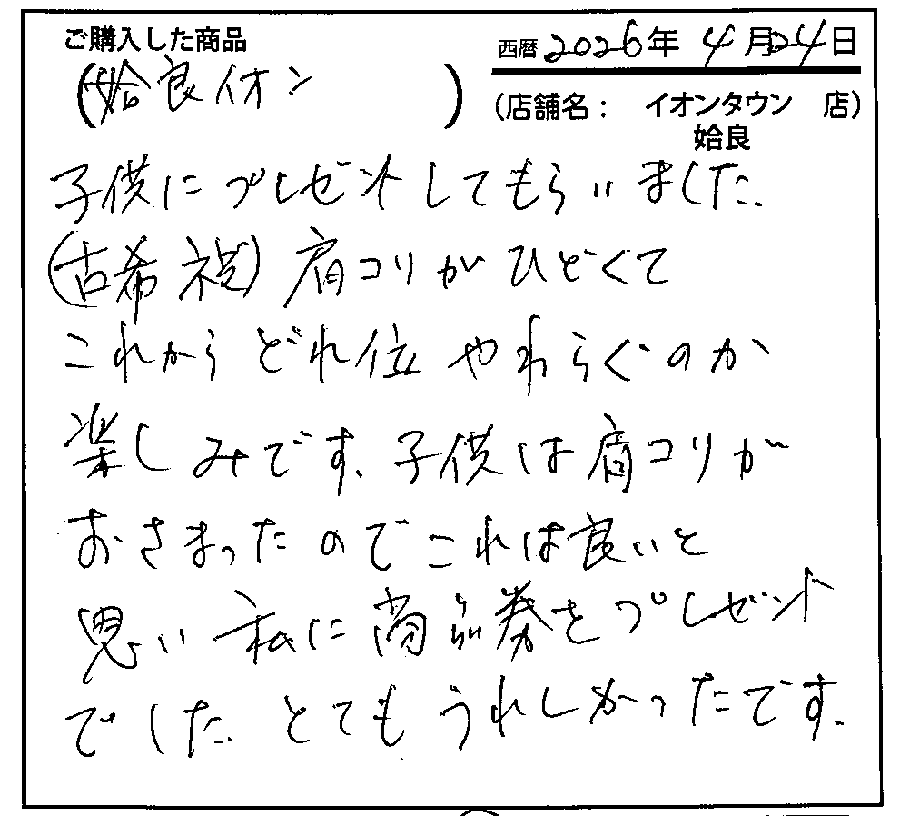 ご購入した商品
西暦 2026年 4月24日
(姶良イオン )
(店舗名： イオンタウン 店)
姶良
子供にプレゼントしてもらいました.
(古希祝) 肩コリがひどくて
これからどれ位やわらぐのか
楽しみです. 子供は肩コリが
おさまったのでこれは良いと
思い私に商品券をプレゼント
でした. とてもうれしかったです.